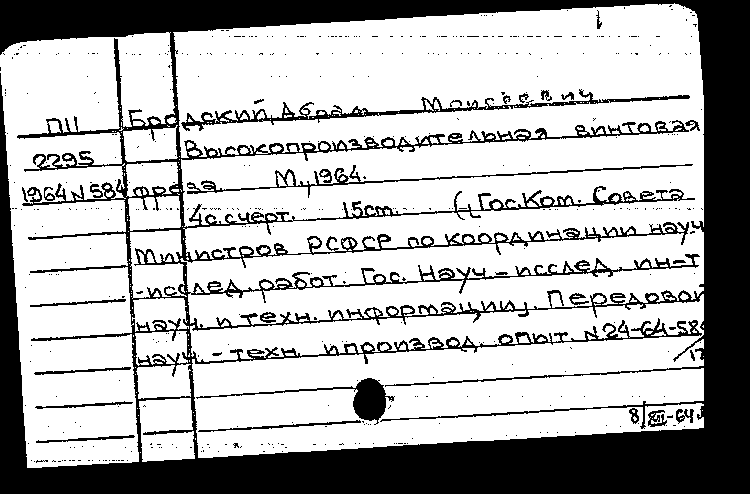 П11 Бродский, Абрам Моисеевич
2295 Высокопроизводительная винтовая
1964 N 584 фреза. М., 1964.
4с. с черт. 15cm. (Гос. Ком. Совета
Министров РСФСР по координации науч.
-исслед. работ. Гос. Науч-исслед. ин-т
науч. и техн. информации). Передовой
науч. - техн. и производ. опыт. N 24-64-584
/17
8/XII-64